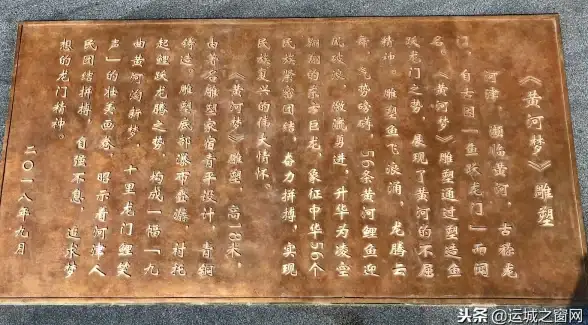 《黄河梦》雕塑
河津，濒临黄河，古称龙
门，自古因“鱼跃龙门”而闻
名。《黄河梦》雕塑通过塑造鱼
跃龙门之势，展现了黄河的不屈
精神。雕塑鱼飞浪涌，龙腾云
举，气势磅礴，56条黄河鲤鱼迎
风破浪，激流勇进，升华为凌空
翱翔的东方巨龙，象征中华56个
民族紧密团结，奋力拼搏，实现
民族复兴的伟大情怀。
《黄河梦》雕塑，高18米，
由著名雕塑家宿青平设计，青铜
铸造。雕塑底部瀑布叠瀑，衬托
起鲤跃龙腾之势，构成一幅“九
曲黄河淘新梦，十里龙门鲤笑
声”的壮美画卷，昭示着河津人
民团结拼搏，自强不息，追求梦
想的龙门精神。
二〇一八年九月
头条 @运城之窗网